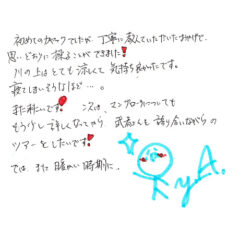 初めてのカヤックでしたが、丁寧に教えていただいたおかげで、
思いどおりに操ることができました!
川の上はとても涼しくて気持ち良かったです。
寝てしまいそうなほど…。
また来たいです! 次は、マングローブについても
もう少し詳しくなってから、武石さんと語り合いながらの
ツアーをしたいです!
では、また暖かい時期に。
y.A.